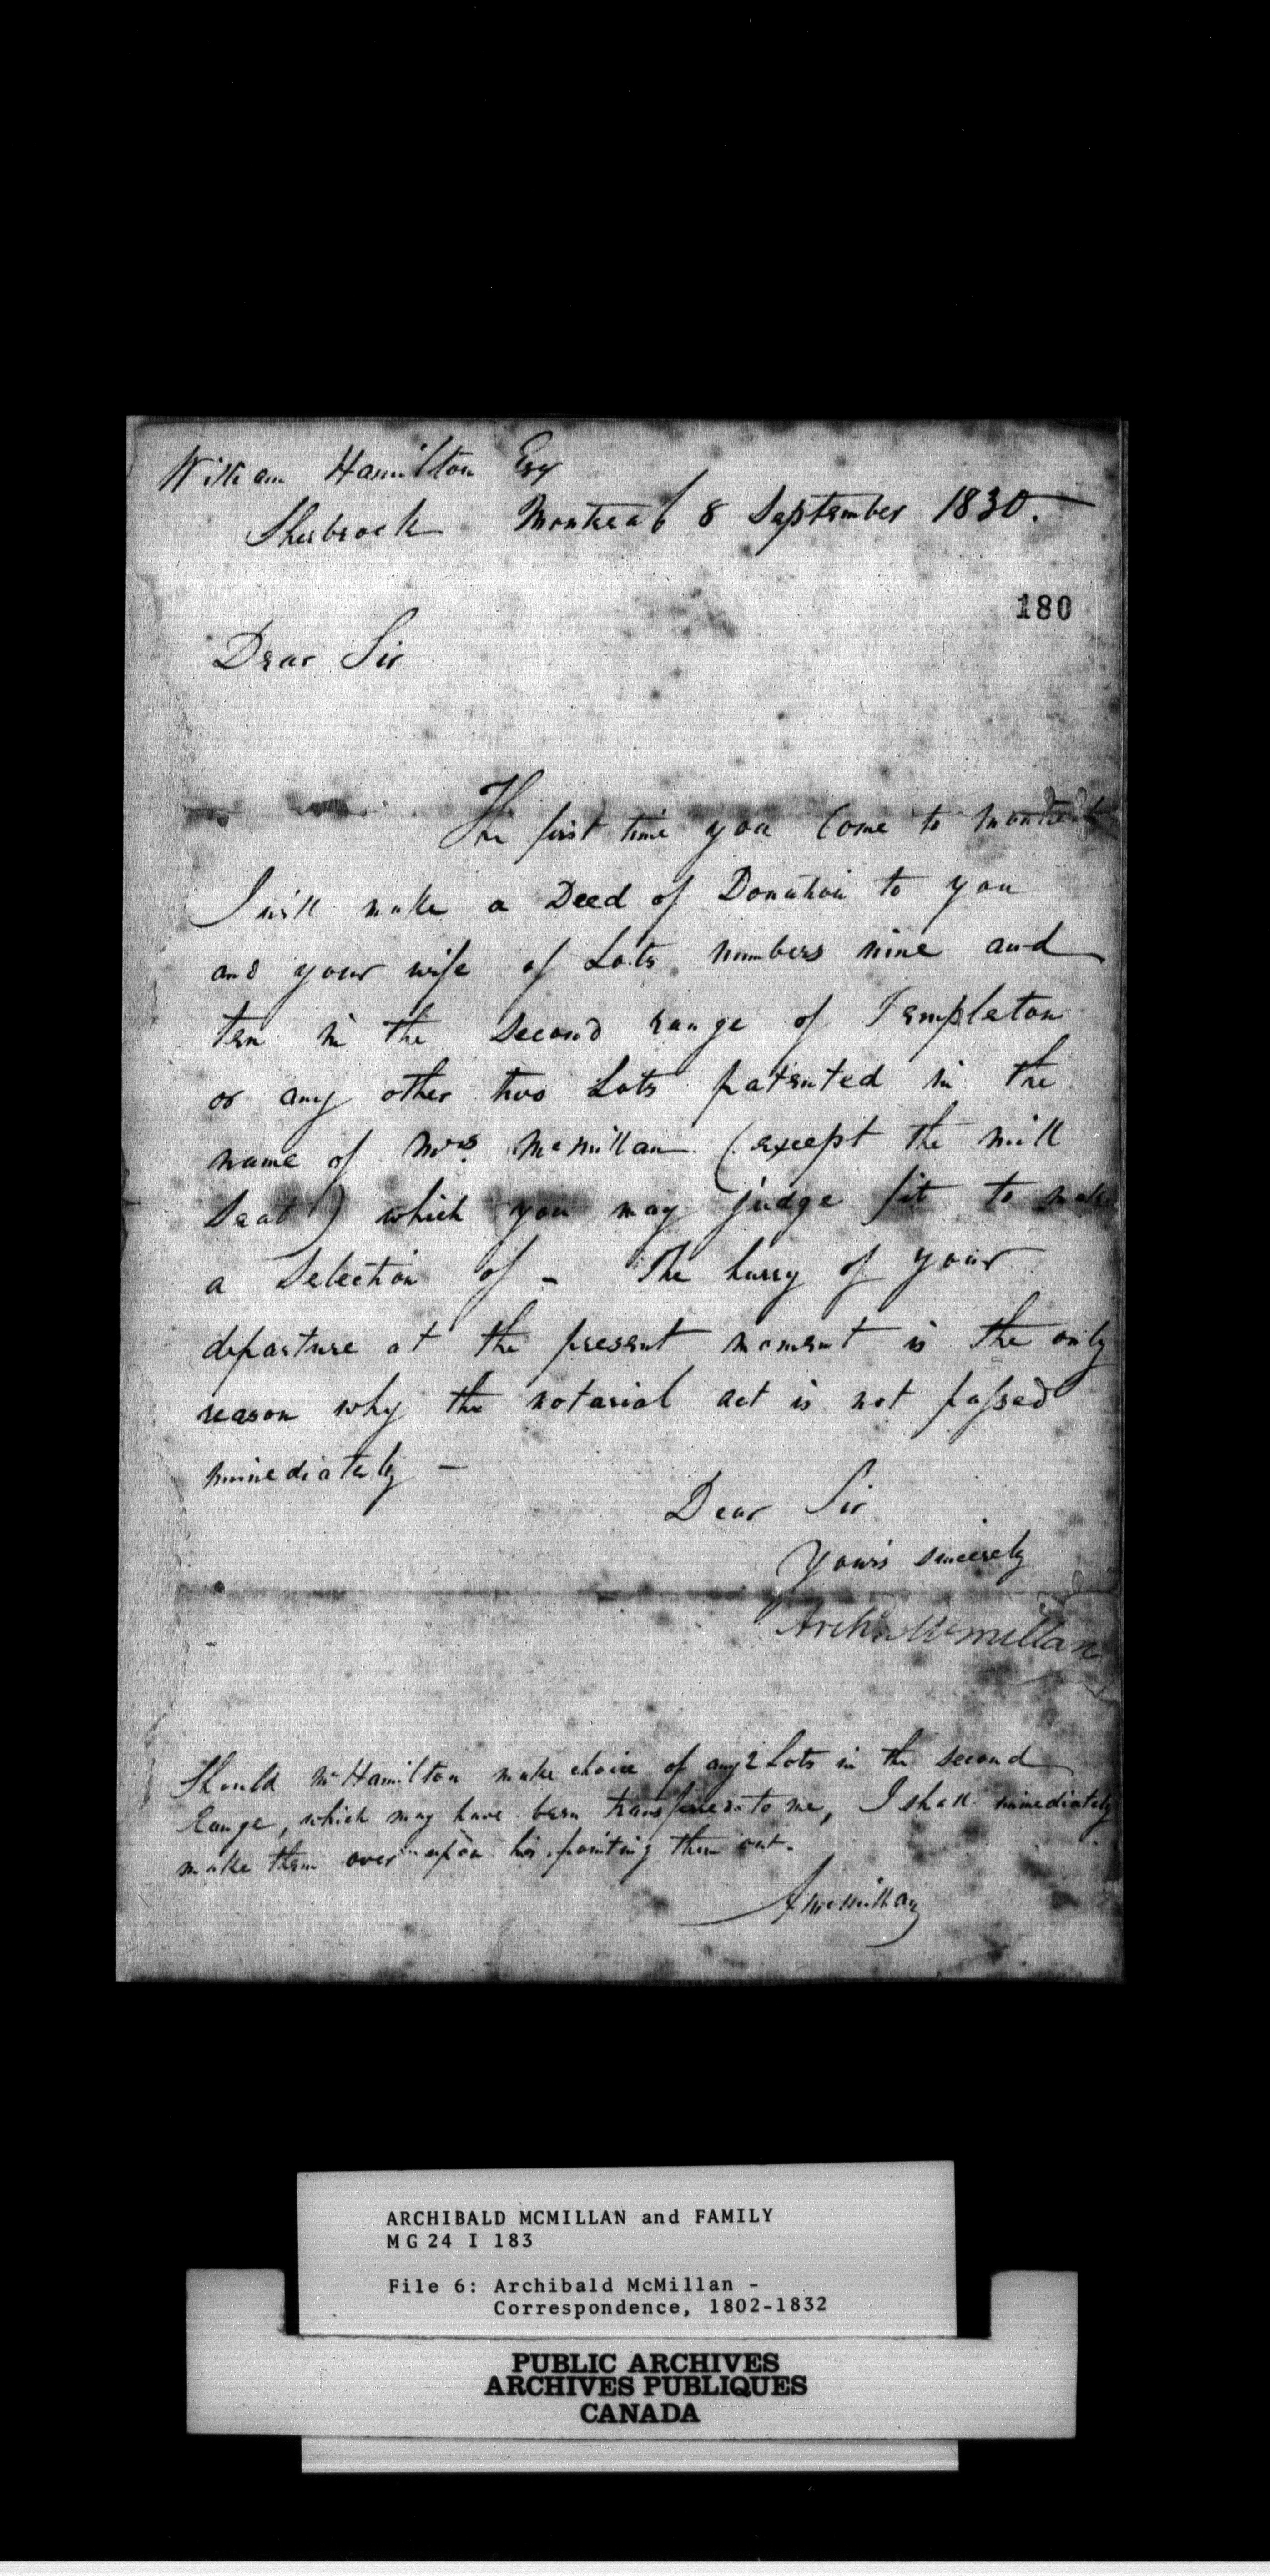 William Hamilton Esqr
Sherbrook Montreal 8 September 1830.
180
Dear Sir
The first time you Come to Montreal
I will make a Deed of Donation to you
and your wife of Lots numbers nine and
ten in the Second range of Templeton
or any other two Lots patented in the
name of Mrs. McMillan (except the mill
Seat) which you may judge fit to make
a Selection of – The hurry of your
departure at the present moment is the only
reason why the notarial act is not passed
immediately –
Dear Sir
Yours sincerely
Archd. McMillan
Should Mr Hamilton make choice of any 2 Lots in the second
Range, which may have been transferred to me, I shall immediately
make them over upon his pointing them out.
A McMillan
ARCHIBALD MCMILLAN and FAMILY
MG 24 I 183
File 6: Archibald McMillan -
Correspondence, 1802-1832
PUBLIC ARCHIVES
ARCHIVES PUBLIQUES
CANADA